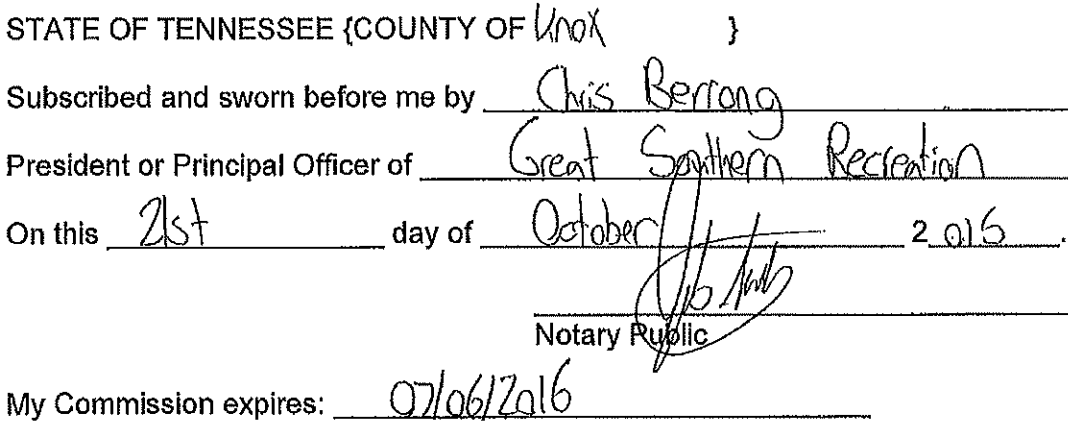 STATE OF TENNESSEE {COUNTY OF Knox }
Subscribed and sworn before me by Chris Berrong
President or Principal Officer of Great Southern Recreation
On this 21st day of October 2016.
Notary Public
My Commission expires: 07/06/2016